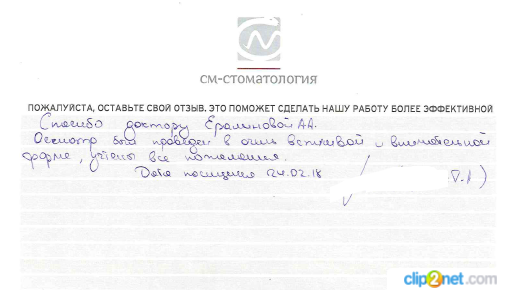 см-стоматология
ПОЖАЛУЙСТА, ОСТАВЬТЕ СВОЙ ОТЗЫВ. ЭТО ПОМОЖЕТ СДЕЛАТЬ НАШУ РАБОТУ БОЛЕЕ ЭФФЕКТИВНОЙ
Спасибо доктору АА.
Осмотр был проведен в очень вежливой и внимательной
форме, учтены все пожелания.
Дата посещения 24.02.18
clip2net.com